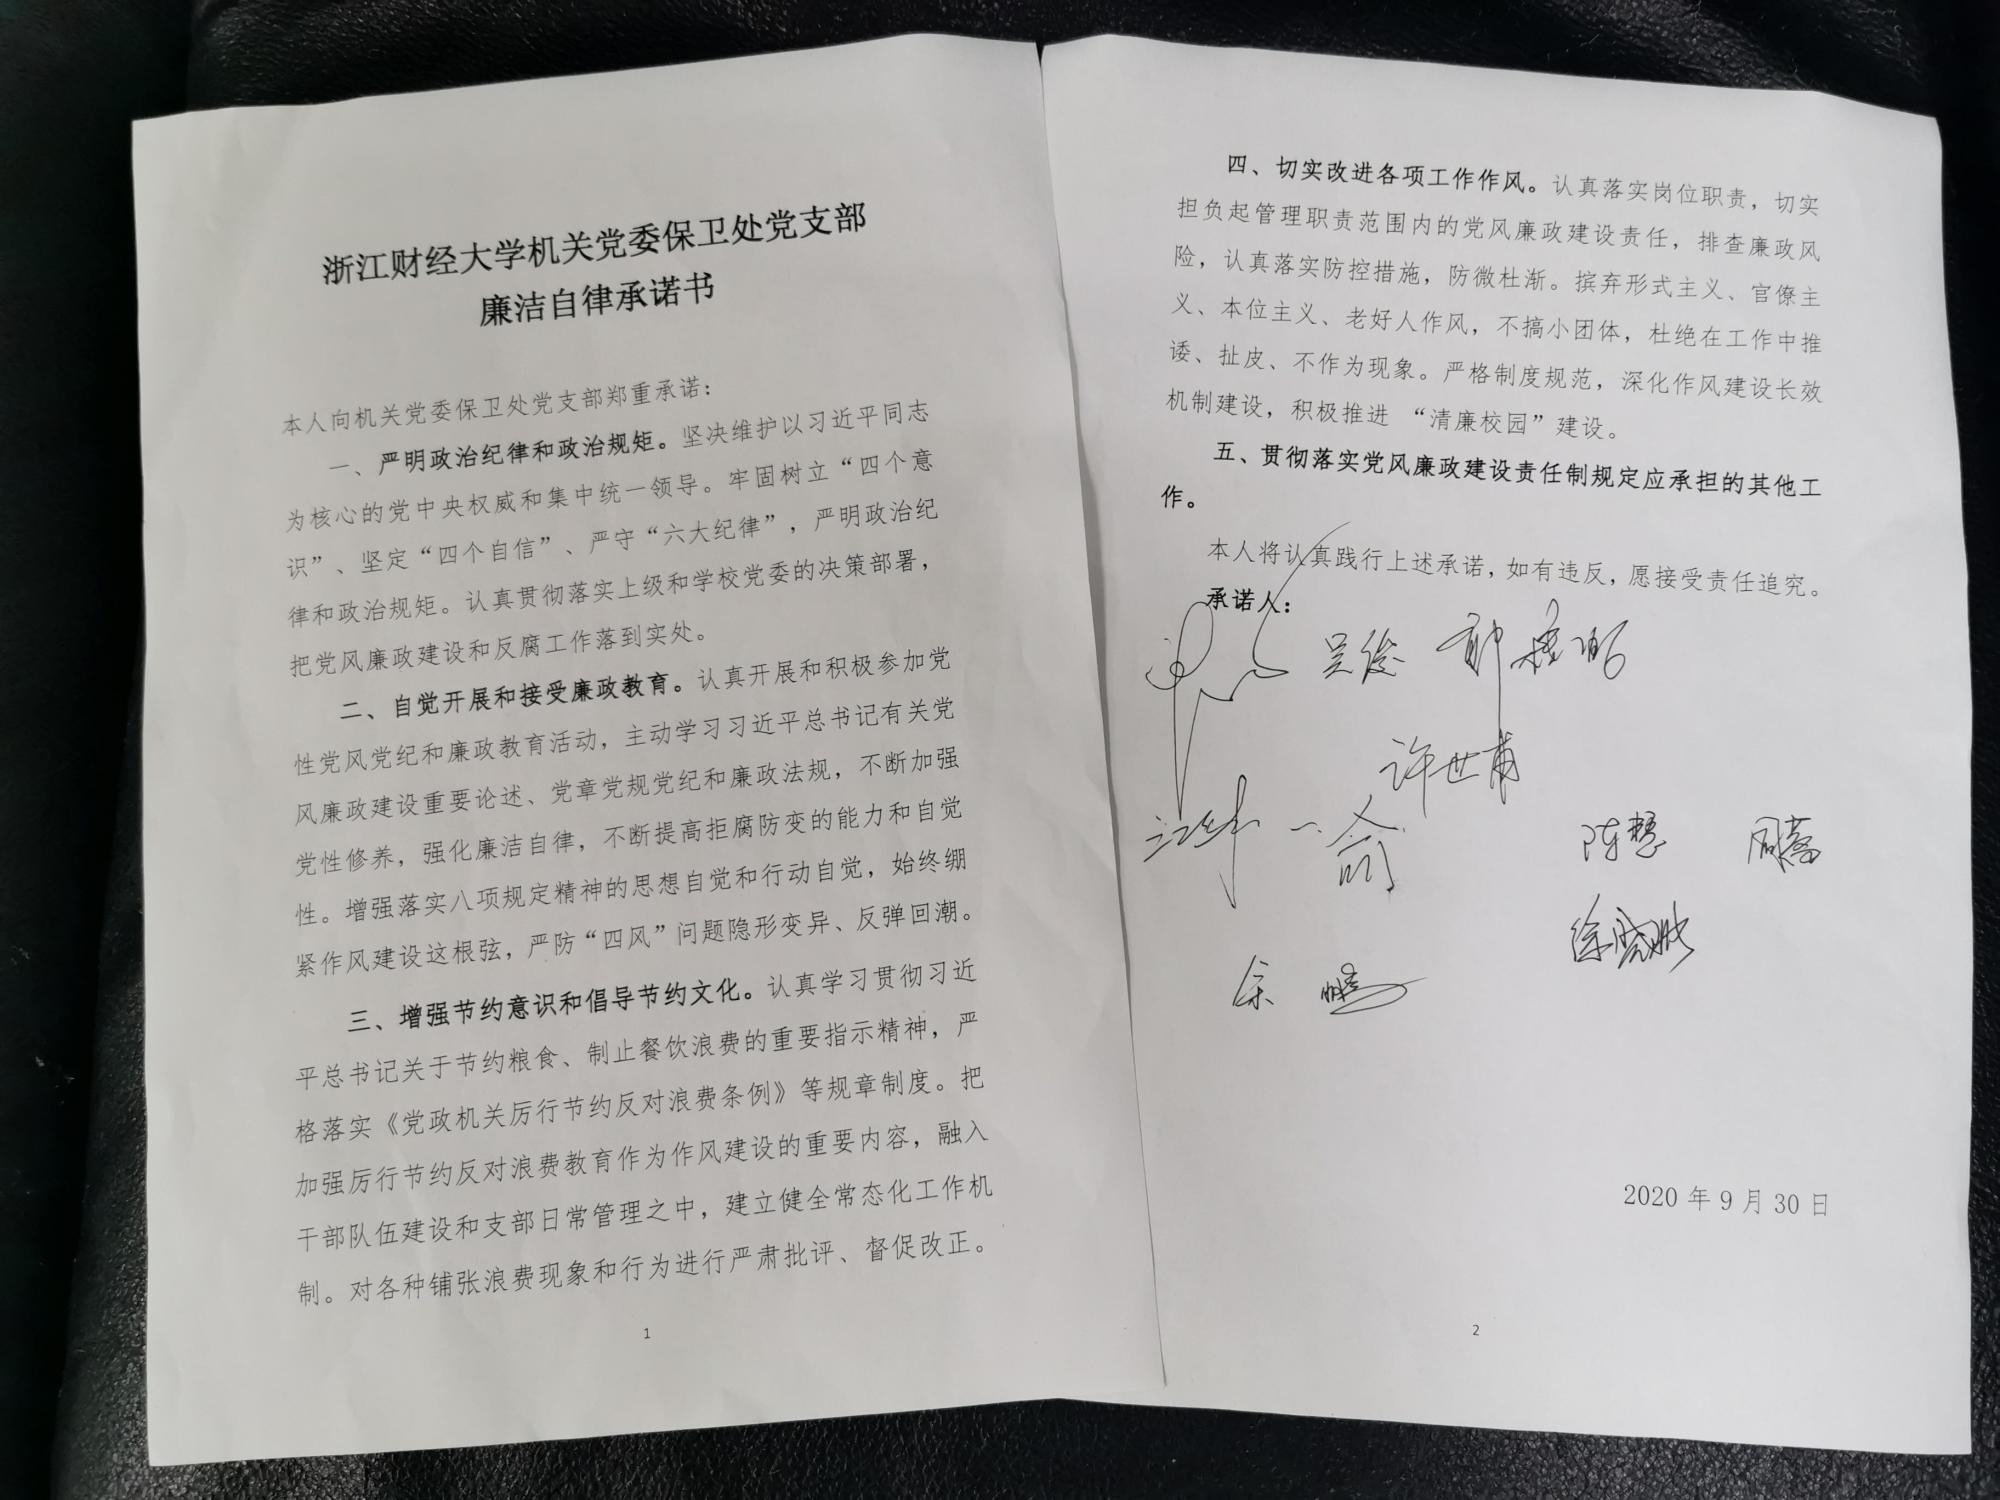 浙江财经大学机关党委保卫处党支部
廉洁自律承诺书
本人向机关党委保卫处党支部郑重承诺：
一、严明政治纪律和政治规矩。坚决维护以习近平同志
为核心的党中央权威和集中统一领导。牢固树立“四个意
识”、坚定“四个自信”、严守“六大纪律”，严明政治纪
律和政治规矩。认真贯彻落实上级和学校党委的决策部署，
把党风廉政建设和反腐工作落到实处。
二、自觉开展和接受廉政教育。认真开展和积极参加党
性党风党纪和廉政教育活动，主动学习习近平总书记有关党
风廉政建设重要论述、党章党规党纪和廉政法规，不断加强
党性修养，强化廉洁自律，不断提高拒腐防变的能力和自觉
性。增强落实八项规定精神的思想自觉和行动自觉，始终绷
紧作风建设这根弦，严防“四风”问题隐形变异、反弹回潮。
三、增强节约意识和倡导节约文化。认真学习贯彻习近
平总书记关于节约粮食、制止餐饮浪费的重要指示精神，严
格落实《党政机关厉行节约反对浪费条例》等规章制度。把
加强厉行节约反对浪费教育作为作风建设的重要内容，融入
干部队伍建设和支部日常管理之中，建立健全常态化工作机
制。对各种铺张浪费现象和行为进行严肃批评、督促改正。
1
四、切实改进各项工作作风。认真落实岗位职责，切实
担负起管理职责范围内的党风廉政建设责任，排查廉政风
险，认真落实防控措施，防微杜渐。摈弃形式主义、官僚主
义、本位主义、老好人作风，不搞小团体，杜绝在工作中推
诿、扯皮、不作为现象。严格制度规范，深化作风建设长效
机制建设，积极推进 “清廉校园”建设。
五、贯彻落实党风廉政建设责任制规定应承担的其他工
作。
本人将认真践行上述承诺，如有违反，愿接受责任追究。
承诺人：
吴俊
许世甫
陈慧 周蓉
余鹏
2020 年 9 月 30 日
2